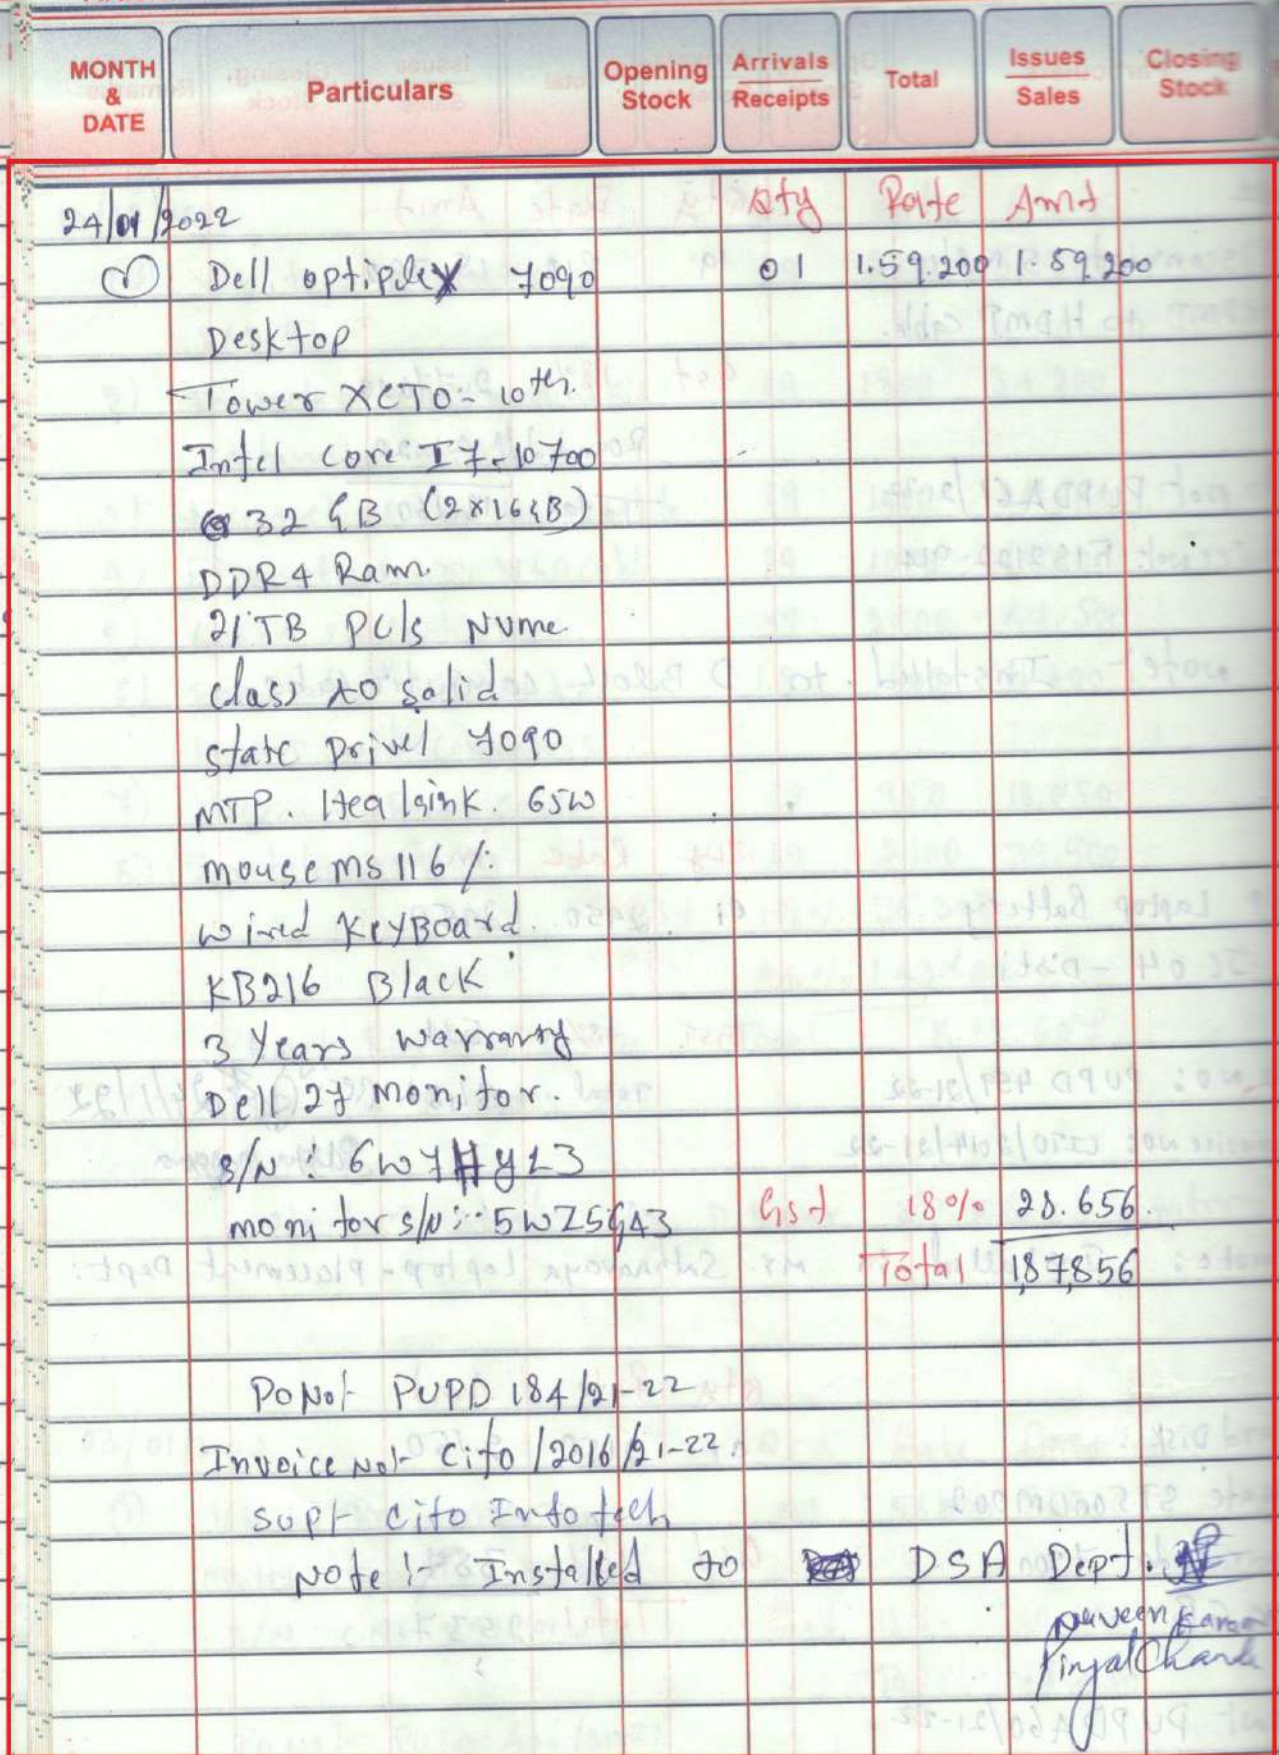 MONTH & DATE Particulars Opening Stock Arrivals Receipts Total Issues Sales Closing Stock
24/01/2022 Qty Rate Amt
Dell optiplex 7090 01 1.59.200 1.59.200
Desktop
Tower XCTO- 10th.
Intel Core I7-10700
32 GB (2x16GB)
DDR4 Ram.
TB PCIs Nvme.
class 40 solid
state Drivel 7090
MTP. Heatsink. 65W
mouse ms 116 /:
wired KeyBoard.
KB216 Black
3 Years warranty
Dell 27 monitor.
S/N : 6W7HYL3
monitor s/N :- 5WZ5G43 Gst 18% 28.656.
Total 1,87,856
PO No:- PUPD 184/21-22
Invoice No:- Cito /2016/21-22.
Supl- Cito Infotech
Note :- Installed to DSA Dept.